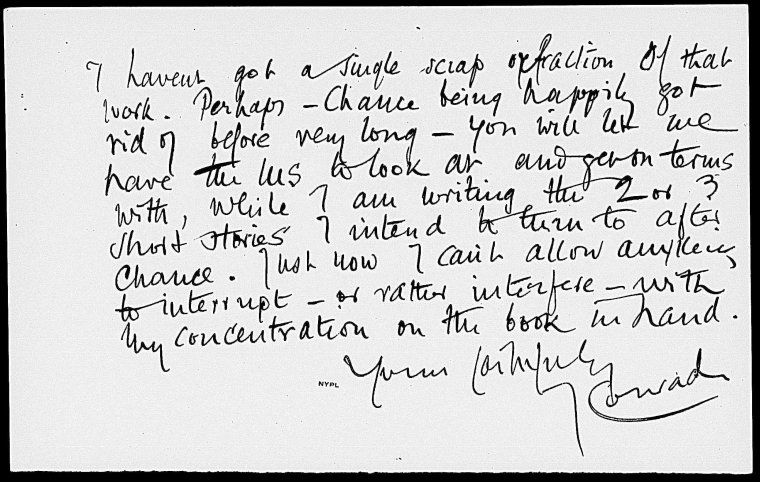 I havent got a single scrap or fraction of that
work. Perhaps – Chance being happily got
rid of before very long – you will let me
have the MS to look at and get on terms
with, while I am writing the 2 or 3
short stories I intend to turn to after
Chance. Just now I can't allow anything
to interrupt – or rather interfere – with
my concentration on the book in hand.
Yours faithfully
Conrad
NYPL